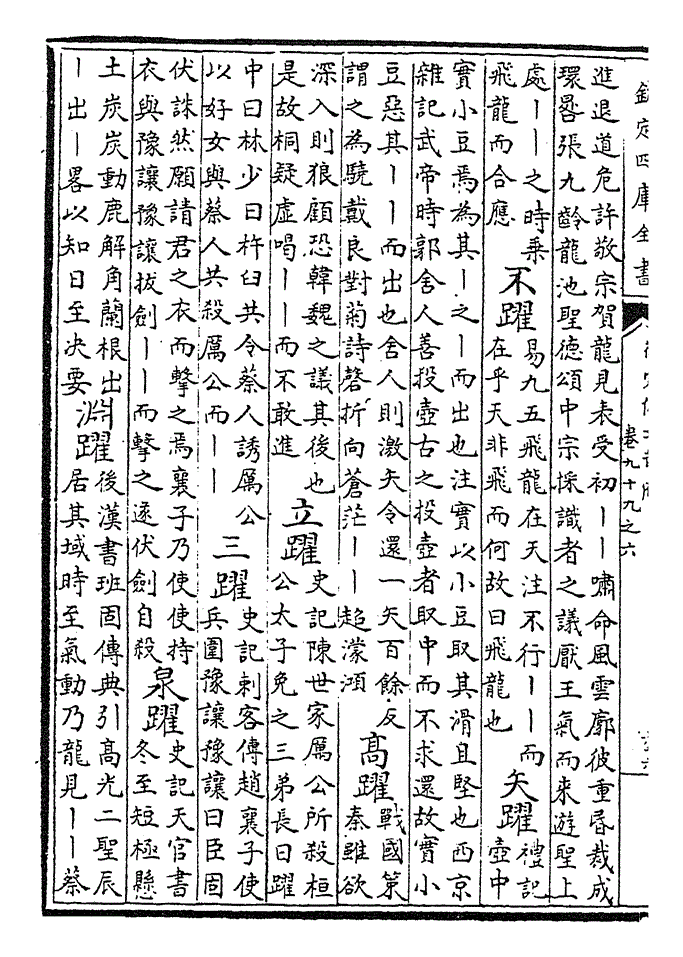 欽定四庫全書
卷九十九之六
進退道危許敬宗賀龍見表受初丨丨嘯命風雲廓彼重昏裁成
環晷張九齡龍池聖德頌中宗採識者之議厭王氣而來遊聖上
處丨丨之時乘
飛龍而合應
不躍
易九五飛龍在天注不行丨丨而
在乎天非飛而何故曰飛龍也
矢躍
禮記
壺中
實小豆焉為其丨之丨而出也注實以小豆取其滑且堅也西京
雜記武帝時郭舍人善投壺古之投壺者取中而不求還故實小
豆惡其丨丨而出也舍人則激矢令還一矢百餘反
謂之為驍戴良對菊詩磬折向蒼茫丨丨超濛澒
高躍
戰國策
秦雖欲
深入則狼顧恐韓魏之議其後也
是故桐疑虛喝丨丨而不敢進
立躍
史記陳世家厲公所殺桓
公太子免之三弟長曰躍
中曰林少曰杵臼共令蔡人誘厲公
以好女與蔡人共殺厲公而丨丨
三躍
史記刺客傳趙襄子使
兵圍豫讓豫讓曰臣固
伏誅然願請君之衣而擊之焉襄子乃使使持
衣與豫讓豫讓拔劍丨丨而擊之遂伏劍自殺
泉躍
史記天官書
冬至短極懸
土炭炭動鹿解角蘭根出
丨出丨畧以知日至决要
淵躍
後漢書班固傳典引高光二聖辰
居其域時至氣動乃龍見丨丨蔡